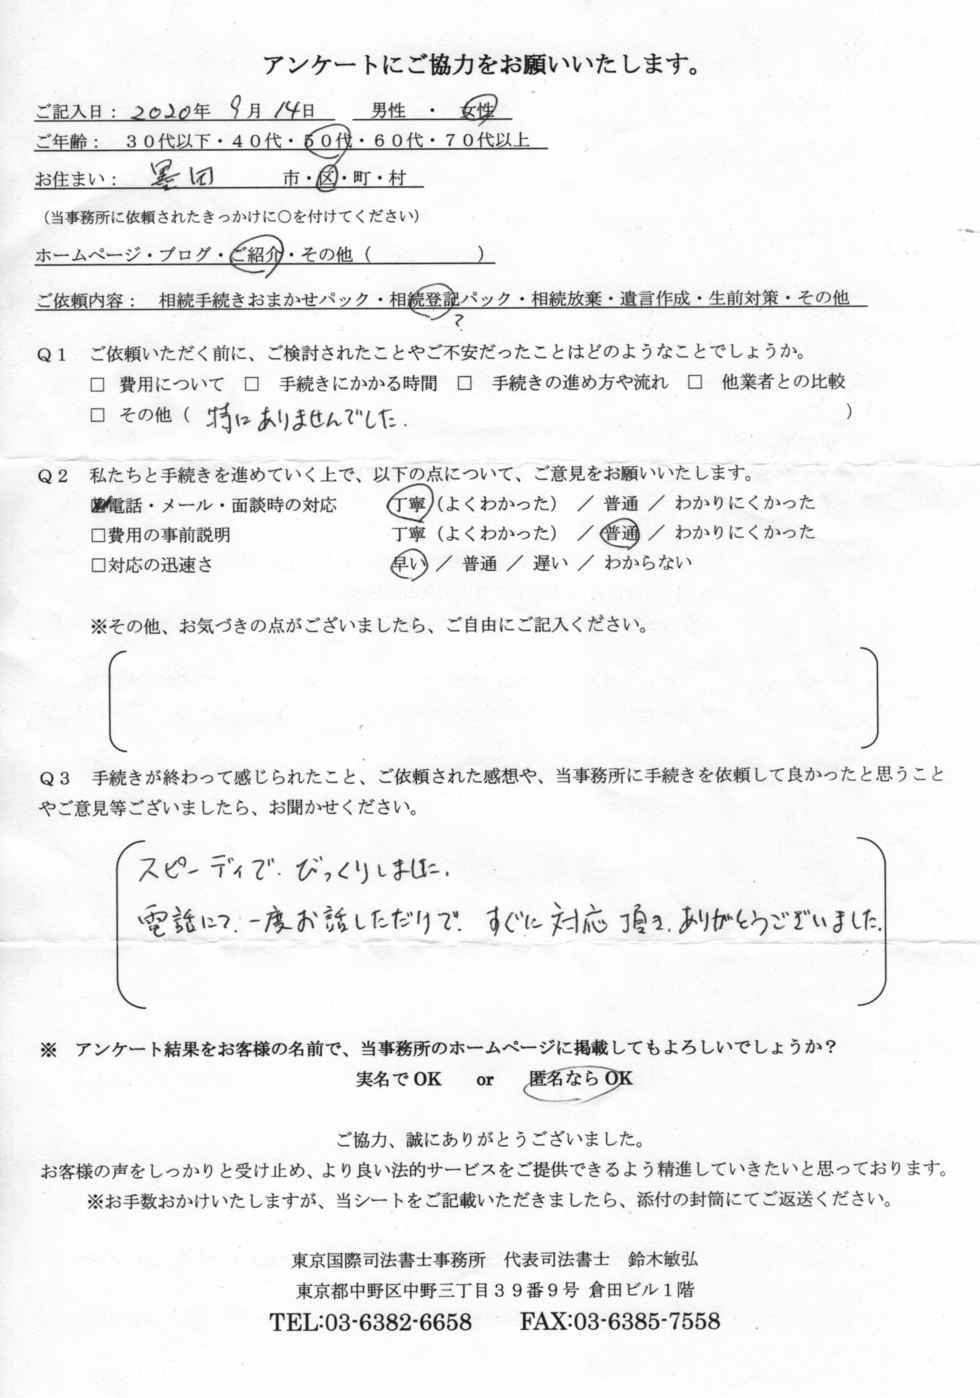 アンケートにご協力をお願いいたします。
ご記入日： 2020年 9月 14日　男性 ・ 女性
ご年齢：　３０代以下・４０代・５０代・６０代・７０代以上
お住まい：　墨田　市・区・町・村
（当事務所に依頼されたきっかけに○を付けてください）
ホームページ・ブログ・ご紹介・その他（　　　　　　）
ご依頼内容：　相続手続きおまかせパック・相続登記パック・相続放棄・遺言作成・生前対策・その他
?
Ｑ１　ご依頼いただく前に、ご検討されたことやご不安だったことはどのようなことでしょうか。
□ 費用について　□ 手続きにかかる時間　□ 手続きの進め方や流れ　□ 他業者との比較
□ その他（ 特にありませんでした. ）
Ｑ２　私たちと手続きを進めていく上で、以下の点について、ご意見をお願いいたします。
☑電話・メール・面談時の対応　丁寧（よくわかった） ／ 普通 ／ わかりにくかった
□費用の事前説明　丁寧（よくわかった） ／ 普通 ／ わかりにくかった
□対応の迅速さ　早い ／ 普通 ／ 遅い ／ わからない
※その他、お気づきの点がございましたら、ご自由にご記入ください。
Ｑ３　手続きが終わって感じられたこと、ご依頼された感想や、当事務所に手続きを依頼して良かったと思うこと
やご意見等ございましたら、お聞かせください。
スピーディで、びっくりしました.
電話にて、一度お話しただけで、すぐに対応頂き、ありがとうございました.
※　アンケート結果をお客様の名前で、当事務所のホームページに掲載してもよろしいでしょうか？
実名でOK　or　匿名ならOK
ご協力、誠にありがとうございました。
お客様の声をしっかりと受け止め、より良い法的サービスをご提供できるよう精進していきたいと思っております。
※お手数おかけいたしますが、当シートをご記載いただきましたら、添付の封筒にてご返送ください。
東京国際司法書士事務所　代表司法書士　鈴木敏弘
東京都中野区中野三丁目３９番９号 倉田ビル１階
TEL:03-6382-6658　FAX:03-6385-7558